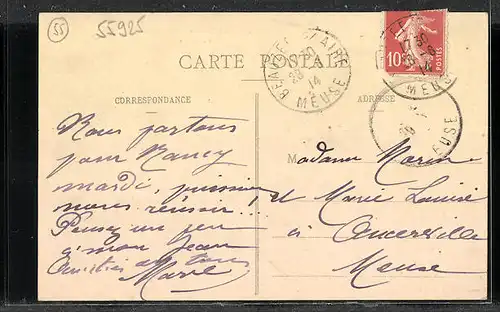 55
55925
CARTE POSTALE
BEAUZEE S/ AIRE
MEUSE
14
10c
POSTES
CORRESPONDANCE
ADRESSE
Nous partons
pour Nancy
mardi, puissions
nous réussir !
Pensez un peu
à mon Jean
Amitiés à tous
Marie
Madame
et Marie Louise
à
Meuse